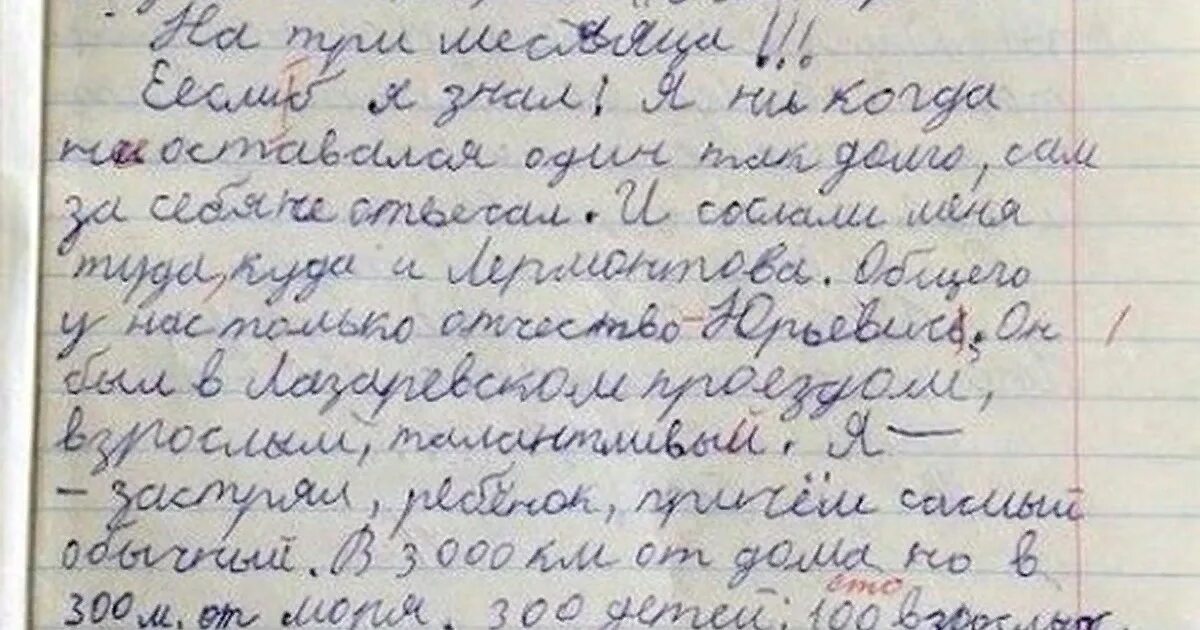 На три месяца !!!
Ееслиб я знал! Я ни когда
не оставался один так долго, сам
за себя не отвечал. И сослали меня
туда, куда и Лермонтова. Общего
у нас только отчество - Юрьевич. Он
был в Лазаревском проездом,
взрослым, талантливый. Я —
- застрял, ребёнок, причём самый
обычный. В 3 000 км от дома но в
сто
300 м. от моря. 300 детей; 100 взрослых.